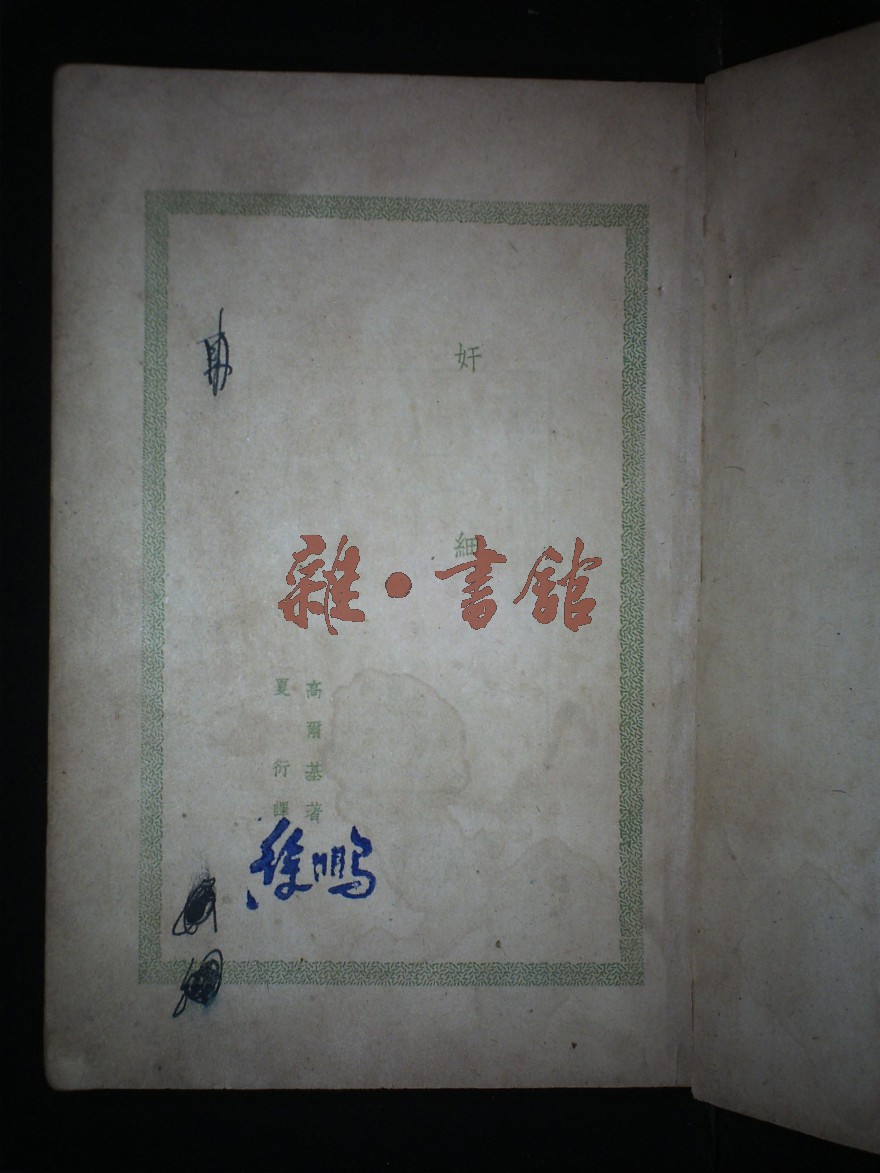 奸細
高爾基著
夏衍譯
徐鵬
雜·書館